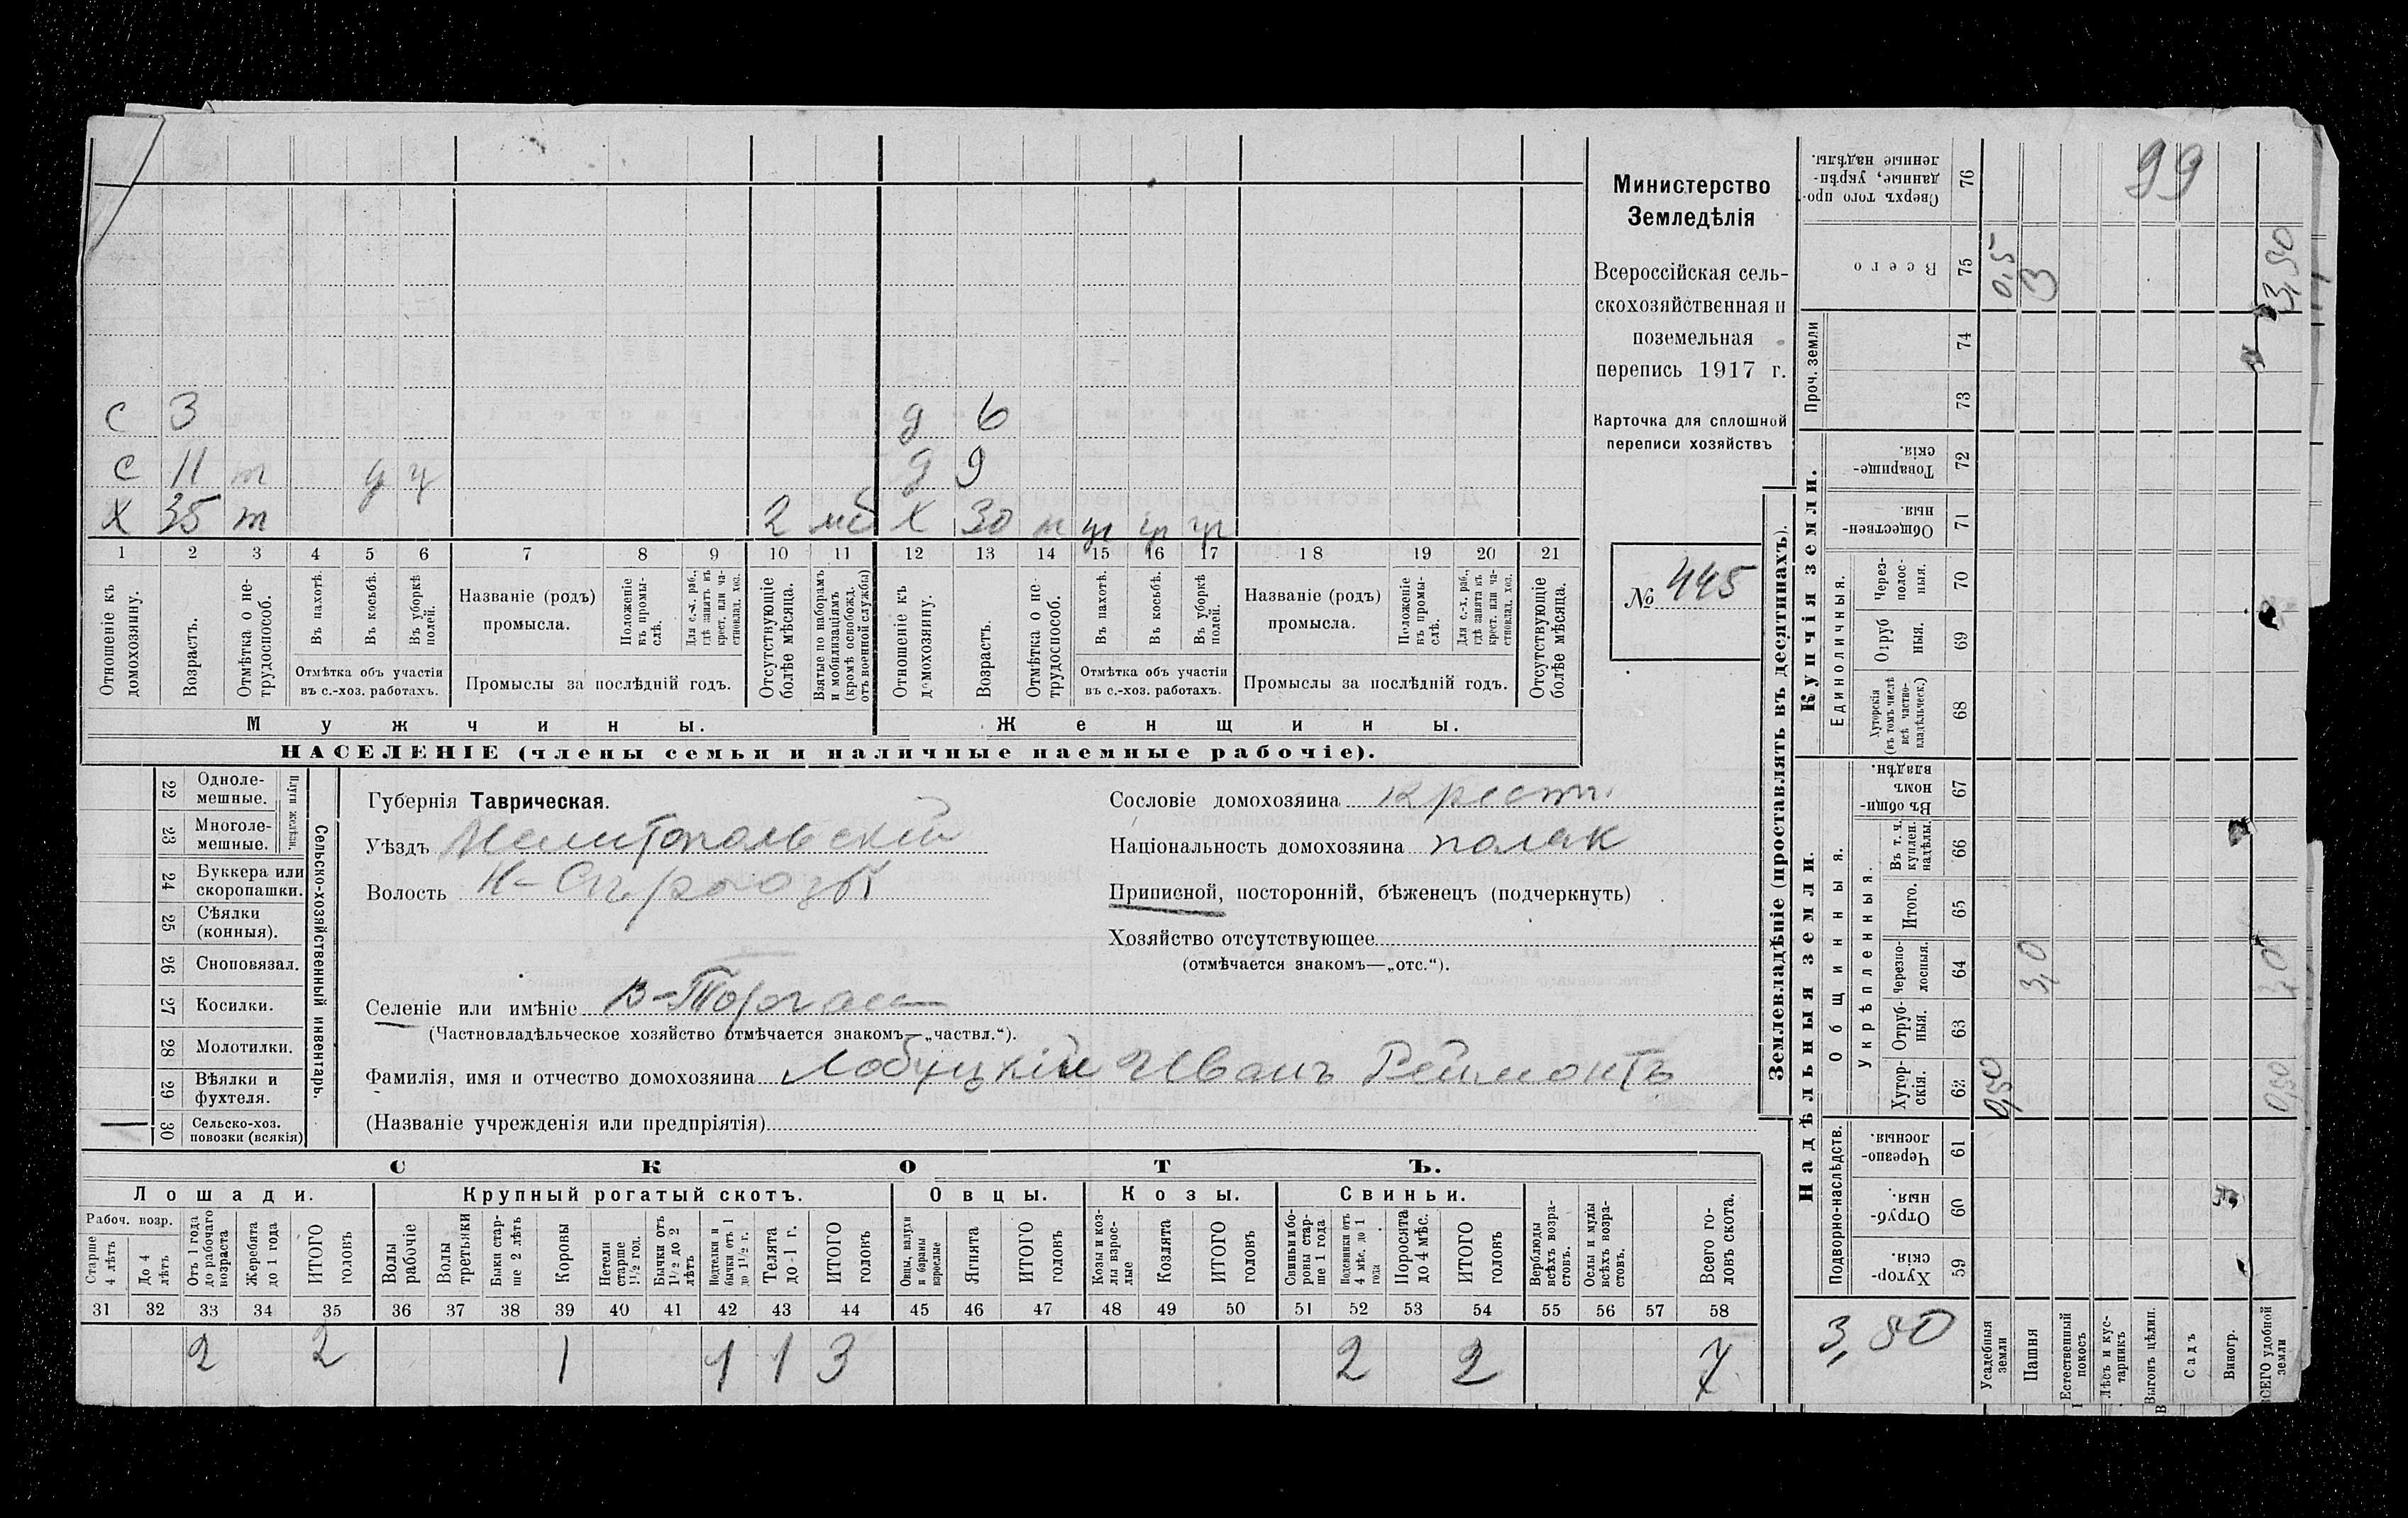 99
С 3 д 6
С 11 т д 9
Х 35 т 2 мб Х 30
1 2 3 4 5 6 7 8 9 10 11 12 13 14 15 16 17 18 19 20 21
Отношеніе къ домохозяину.
Возрастъ.
Отмѣтка о нетрудоспособ.
Въ пахотѣ.
Въ косьбѣ.
Въ уборкѣ полей.
Отмѣтка объ участіи
въ с.-хоз. работахъ.
Названіе (родъ)
промысла.
Положеніе въ промыслѣ.
Для с.-х. раб., гдѣ занятъ въ крест. или частновлад. хоз.
Промыслы за послѣдній годъ.
Отсутствующіе болѣе мѣсяца.
Взятые по наборамъ и мобилизаціямъ (кромѣ освобожд. отъ военной службы)
Отношеніе къ домохозяину.
Возрастъ.
Отмѣтка о нетрудоспособ.
Въ пахотѣ.
Въ косьбѣ.
Въ уборкѣ полей.
Отмѣтка объ участіи
въ с.-хоз. работахъ.
Названіе (родъ)
промысла.
Положеніе въ промыслѣ.
Для с.-х. раб., гдѣ занята въ крест. или частновлад. хоз.
Промыслы за послѣдній годъ.
Отсутствующіе болѣе мѣсяца.
Мужчины. Женщины.
НАСЕЛЕНІЕ (члены семьи и наличные наемные рабочіе).
Министерство
Земледѣлія
Всероссійская сель-
скохозяйственная и
поземельная
перепись 1917 г.
Карточка для сплошной
переписи хозяйствъ
№ 445
22 Одноле-
мешные.
23 Многоле-
мешные.
Плуги желѣзн.
24 Буккера или
скоропашки.
25 Сѣялки
(конныя).
26 Сноповязал.
27 Косилки.
28 Молотилки.
29 Вѣялки и
фухтеля.
30 Сельско-хоз.
повозки (всякія)
1
Сельско-хозяйственный инвентарь.
Губернія Таврическая.
Уѣздъ Мелитопольскій
Волость Н-Сирогозы
Селеніе или имѣніе В-Торгаи
(Частновладѣльческое хозяйство отмѣчается знакомъ—„частвл.“).
Фамилія, имя и отчество домохозяина Лобуцкій Иванъ Реймонтъ
(Названіе учрежденія или предпріятія)
Сословіе домохозяина крест.
Національность домохозяина поляк
Приписной, посторонній, бѣженецъ (подчеркнуть)
Хозяйство отсутствующее
(отмѣчается знакомъ—„отс.“).
СКОТЪ.
Лошади. Крупный рогатый скотъ. Овцы. Козы. Свиньи.
Рабоч. возр.
Старше 4 лѣтъ
До 4 лѣтъ
Отъ 1 года до рабочаго возраста
Жеребята до 1 года
ИТОГО головъ
Волы рабочіе
Волы третьяки
Быки старше 2 лѣтъ
Коровы
Нетели старше 1½ год.
Бычки отъ 1½ до 2 лѣтъ
Подтелки и бычки отъ 1 до 1½ г.
Телята до 1 г.
ИТОГО головъ
Овцы, валухи и бараны взрослые
Ягнята
ИТОГО головъ
Козы и козлы взрослые
Козлята
ИТОГО головъ
Свиньи и боровы старше 1 года
Подсвинки отъ 4 мѣс. до 1 года
Поросята до 4 мѣс.
ИТОГО головъ
Верблюды всѣхъ возрастовъ.
Ослы и мулы всѣхъ возрастовъ.
Всего головъ скота.
31 32 33 34 35 36 37 38 39 40 41 42 43 44 45 46 47 48 49 50 51 52 53 54 55 56 57 58
2 2 1 1 1 3 2 2 7
Землевладѣніе (проставлять въ десятинахъ).
Надѣльныя земли. Купчія земли. Проч. земли
Подворно-наслѣдств.
Общинныя.
Укрѣпленныя.
Единоличныя.
59 Хуторскія.
60 Отрубныя.
61 Черезполосныя.
62 Хуторскія.
63 Отрубныя.
64 Черезполосныя.
65 Итого.
66 Въ т. ч. куплен. надѣлы.
67 Въ общинномъ владѣн.
68 Хуторскія (въ томъ числѣ всѣ частновладѣльческ.)
69 Отрубныя.
70 Черезполосныя.
71 Общественныя.
72 Товарищескія.
73
74
75 Всего
76 Сверхъ того проданные, укрѣпленные надѣлы.
3,50
Усадебныя земли 0,50 0,5
Пашня 3,0 3
Естественный покосъ
Лѣсъ и кустарникъ
Выгонъ цѣлин.
Садъ
Виногр.
ВСЕГО удобной земли 0,50 3,0 3,50